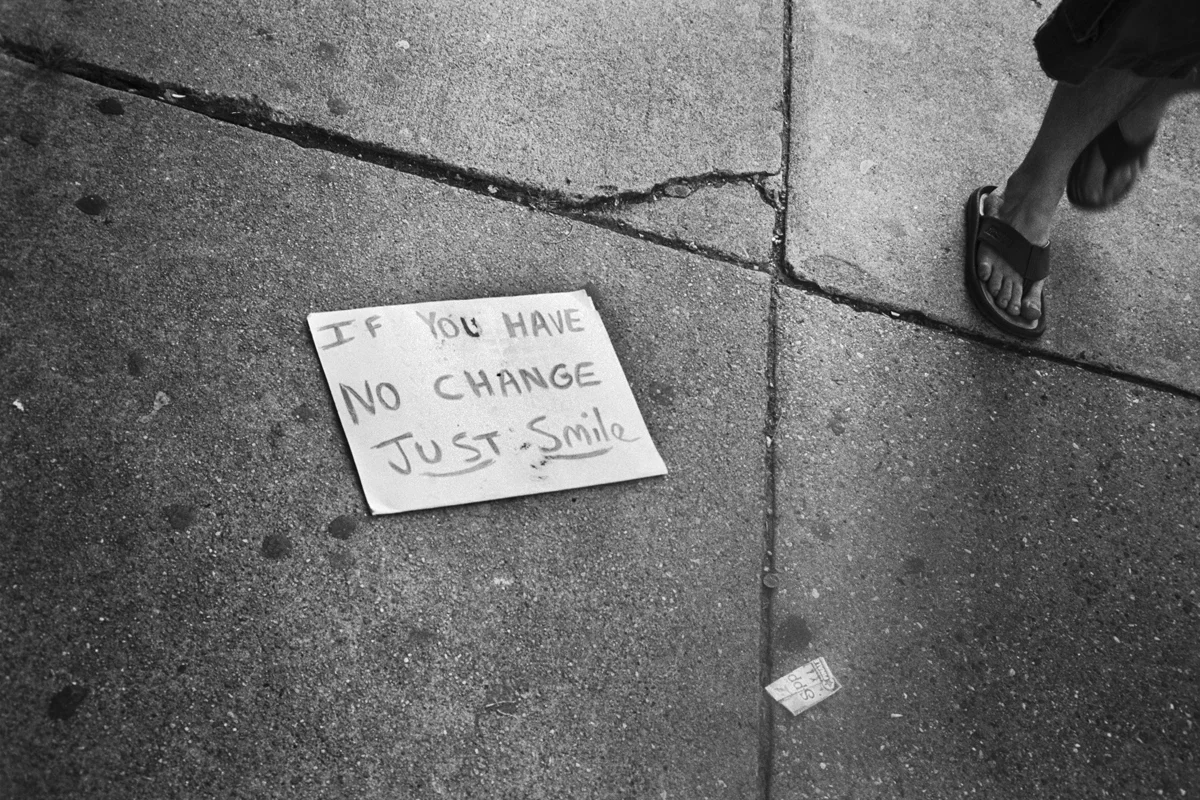 IF YOU HAVE
NO CHANGE
JUST Smile